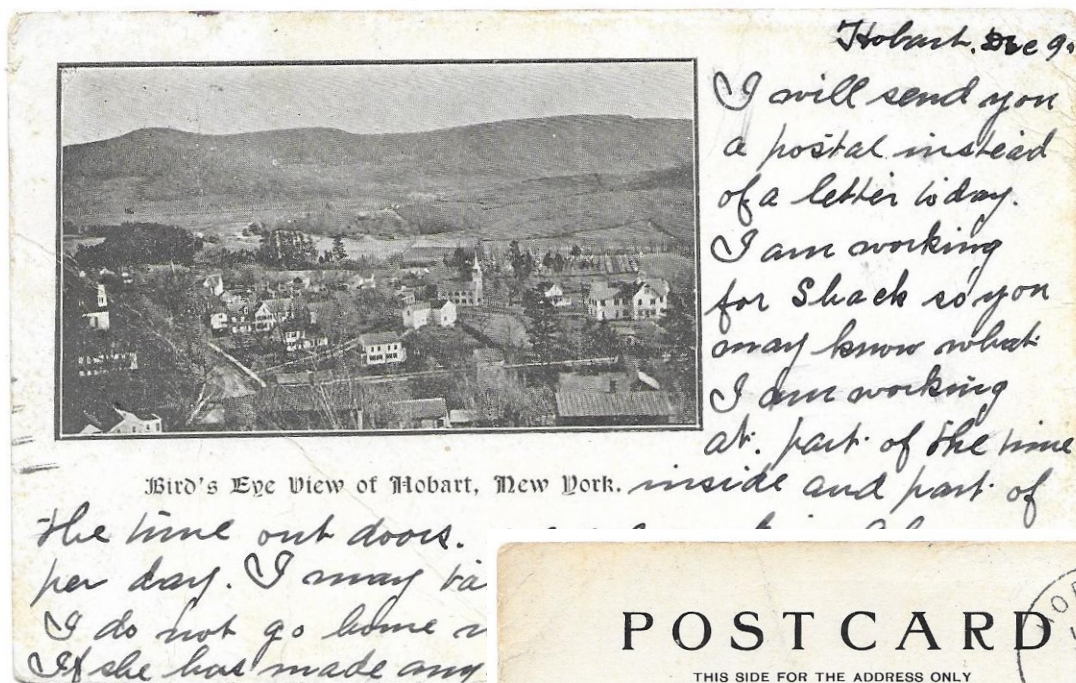 Hobart, Dec 9.
I will send you
a postal instead
of a letter today.
I am working
for Shack so you
may know what
I am working
at. part of the time
Bird's Eye View of Hobart, New York.
inside and part of
the time out doors.
per day. I may
I do not go home
If she has made any
POSTCARD
THIS SIDE FOR THE ADDRESS ONLY